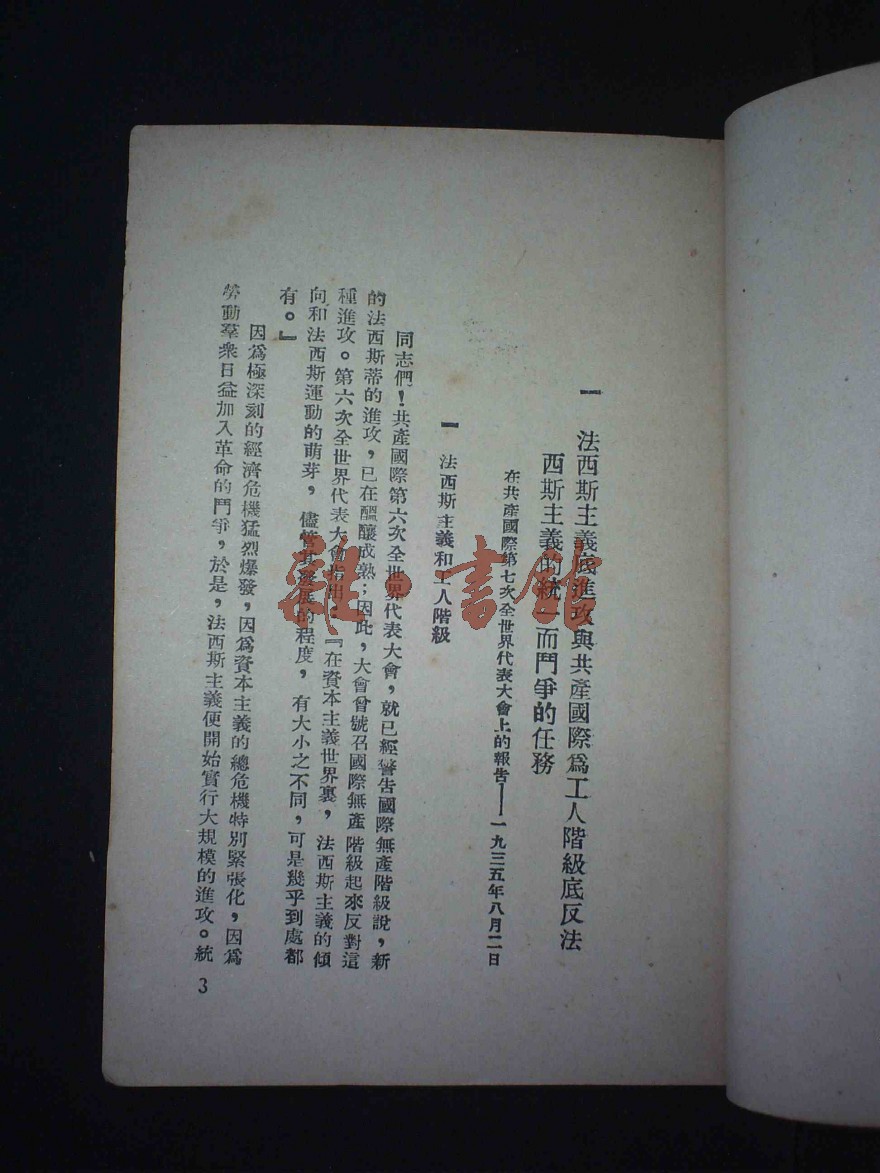 一　法西斯主義底進攻與共產國際爲工人階級底反法
西斯主義的統一而鬥爭的任務
在共產國際第七次全世界代表大會上的報告——一九三五年八月二日
一　法西斯主義和工人階級
同志們！共產國際第六次全世界代表大會，就已經警告國際無產階級說，新
的法西斯蒂的進攻，已在醞釀成熟；因此，大會曾號召國際無產階級起來反對這
種進攻。第六次全世界代表大會指出：『在資本主義世界裏，法西斯主義的傾
向和法西斯運動的萌芽，儘管其發展的程度，有大小之不同，可是幾乎到處都
有。』
因爲極深刻的經濟危機猛烈爆發，因爲資本主義的總危機特別緊張化，因爲
勞動羣衆日益加入革命的鬥爭，於是，法西斯主義便開始實行大規模的進攻。統
3
雜·書館